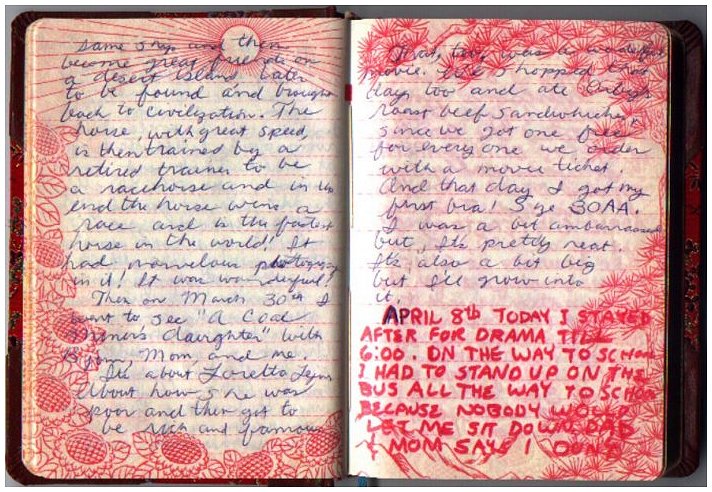 same ship and then
become great friends on
a desert island later
to be found and brought
back to civilization. The
horse, with great speed,
is then trained by a
retired trainer to be
a racehorse and in the
end the horse wins a
race and is the fastest
horse in the world! It
had marvelous photography
in it! It was wonderful!
Then on March 30th I
went to see "A Coal
Miner's daughter" with
Mom and me.
It's about Loretta Lynn
About how she was
poor and then got to
be rich and famous
That, too, was a wonderful
movie. We shopped that
day, too and ate Arby's
roast beef sandwhiches"
since we got one free
for every one we order
with a movie ticket.
And that day I got my
first bra! Size 30AA.
I was a bit embarrassed
but, Its pretty neat.
Its also a bit big
but I'll grow into
it.
APRIL 8th TODAY I STAYED
AFTER FOR DRAMA TILL
6:00. ON THE WAY TO SCHOOL
I HAD TO STAND UP ON THE
BUS ALL THE WAY TO SCHOOL
BECAUSE NOBODY WOULD
LET ME SIT DOWN. DAD
& MOM SAYS I